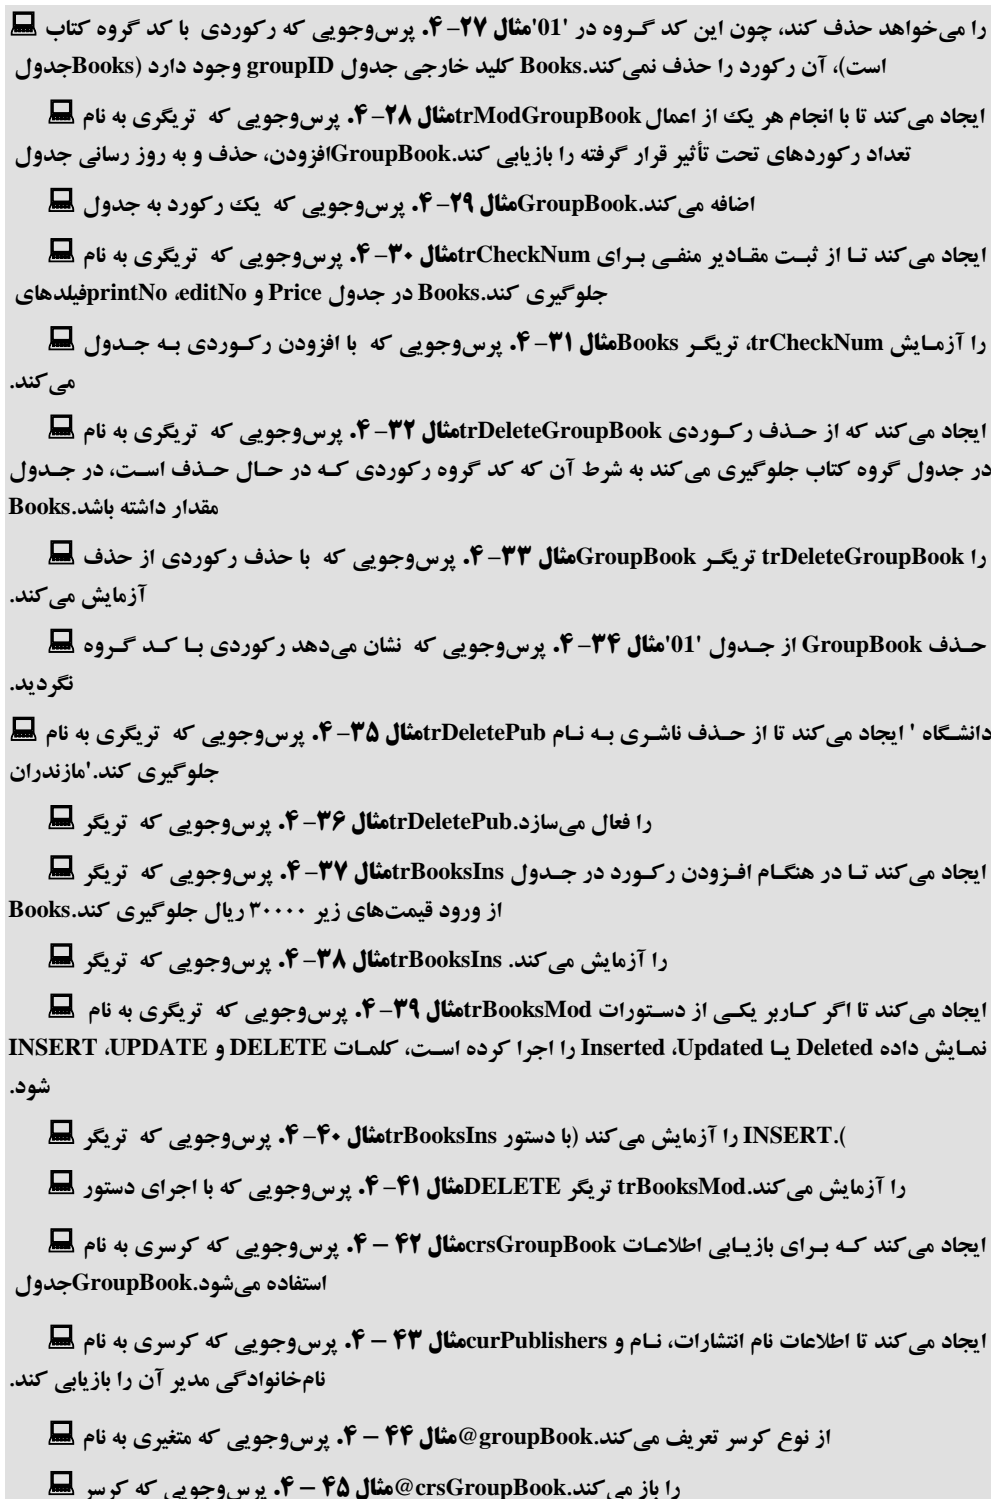 را می‌خواهد حذف کند، چون این کد گروه در '01'مثال ۲۷-۴. پرس‌وجویی که رکوردی با کد گروه کتاب
است)، آن رکورد را حذف نمی‌کند.Books کلید خارجی جدول groupID وجود دارد (Booksجدول
ایجاد می‌کند تا با انجام هر یک از اعمال trModGroupBookمثال ۲۸-۴. پرس‌وجویی که تریگری به نام
تعداد رکوردهای تحت تأثیر قرار گرفته را بازیابی کند.GroupBookافزودن، حذف و به روز رسانی جدول
اضافه می‌کند.GroupBookمثال ۲۹-۴. پرس‌وجویی که یک رکورد به جدول
ایجاد می‌کند تا از ثبت مقادیر منفی برای trCheckNumمثال ۳۰-۴. پرس‌وجویی که تریگری به نام
جلوگیری کند.Books در جدول Price و editNo، printNoفیلدهای
را آزمایش trCheckNum، تریگر Booksمثال ۳۱-۴. پرس‌وجویی که با افزودن رکوردی به جدول
می‌کند.
ایجاد می‌کند که از حذف رکوردی trDeleteGroupBookمثال ۳۲-۴. پرس‌وجویی که تریگری به نام
در جدول گروه کتاب جلوگیری می‌کند به شرط آن که کد گروه رکوردی که در حال حذف است، در جدول
مقدار داشته باشد.Books
را trDeleteGroupBook تریگر GroupBookمثال ۳۳-۴. پرس‌وجویی که با حذف رکوردی از حذف
آزمایش می‌کند.
حذف GroupBook از جدول '01'مثال ۳۴-۴. پرس‌وجویی که نشان می‌دهد رکوردی با کد گروه
نگردید.
دانشگاه ' ایجاد می‌کند تا از حذف ناشری به نام trDeletePubمثال ۳۵-۴. پرس‌وجویی که تریگری به نام
جلوگیری کند.'مازندران
را فعال می‌سازد.trDeletePubمثال ۳۶-۴. پرس‌وجویی که تریگر
ایجاد می‌کند تا در هنگام افزودن رکورد در جدول trBooksInsمثال ۳۷-۴. پرس‌وجویی که تریگر
از ورود قیمت‌های زیر ۳۰۰۰۰ ریال جلوگیری کند.Books
را آزمایش می‌کند. trBooksInsمثال ۳۸-۴. پرس‌وجویی که تریگر
ایجاد می‌کند تا اگر کاربر یکی از دستورات trBooksModمثال ۳۹-۴. پرس‌وجویی که تریگری به نام
نمایش داده Deleted یا Inserted ،Updated را اجرا کرده است، کلمات DELETE و INSERT ،UPDATE
شود.
).INSERT را آزمایش می‌کند (با دستور trBooksInsمثال ۴۰-۴. پرس‌وجویی که تریگر
را آزمایش می‌کند.trBooksMod تریگر DELETEمثال ۴۱-۴. پرس‌وجویی که با اجرای دستور
ایجاد می‌کند که برای بازیابی اطلاعات crsGroupBookمثال ۴۲ – ۴. پرس‌وجویی که کرسری به نام
استفاده می‌شود.GroupBookجدول
ایجاد می‌کند تا اطلاعات نام انتشارات، نام و curPublishersمثال ۴۳ – ۴. پرس‌وجویی که کرسری به نام
نام‌خانوادگی مدیر آن را بازیابی کند.
از نوع کرسر تعریف می‌کند.groupBook@مثال ۴۴ – ۴. پرس‌وجویی که متغیری به نام
را باز می‌کند.crsGroupBook@مثال ۴۵ – ۴. پرس‌وجویی که کرسر